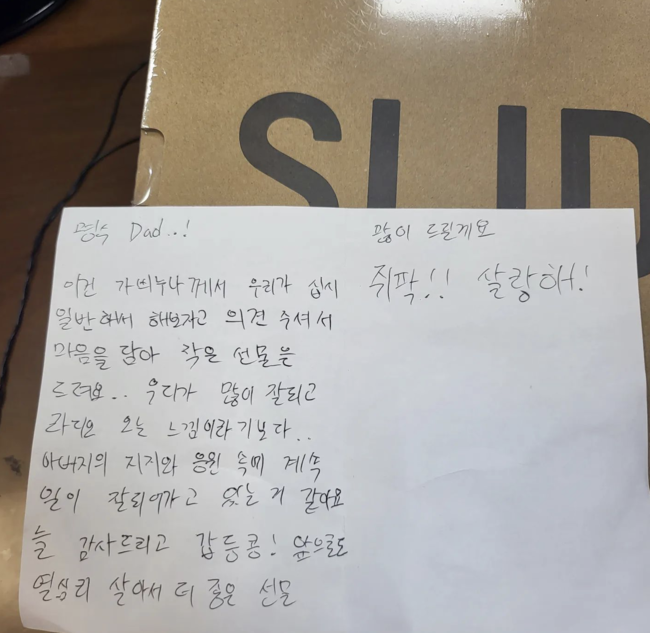 SLID
명수 Dad..!
이건 가비누나께서 우리가 십시
일반 해서 해보자고 의견 주셔서
마음을 담아 작은 선물을
드려요.. 우리가 많이 잘되고
라디오 오는 느낌이라기보다..
아버지의 지지와 응원 속에 계속
일이 잘되어가고 있는 거 같아요
늘 감사드리고 갑둥콩! 앞으로도
열심히 살아서 더 좋은 선물
많이 드릴게요
쥐팍!! 살랑해!